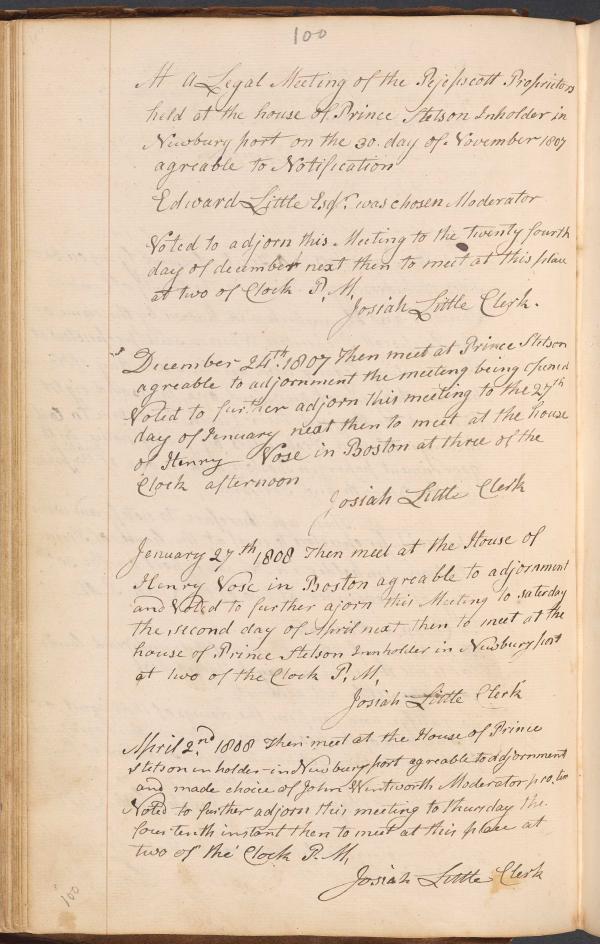 100
At a Legal Meeting of the Pejepscott Proprietors
held at the house of Prince Stetson Inholder in
Newbury port on the 30. day of November 1807
agreable to Notification
Edward Little Esqr. was chosen Moderator
Voted to adjorn this Meeting to the twenty fourth
day of december next then to meet at this place
at two of Clock P. M.
Josiah Little Clerk.
December 24th. 1807 Then meet at Prince Stetson
agreable to adjornment the meeteng being opened
Voted to further adjorn this meeting to the 27th
day of Jenuary next then to meet at the house
of Henry Vose in Boston at three of the
Clock afternoon
Josiah Little Clerk
Jenuary 27th 1808 Then meet at the House of
Henry Vose in Boston agreable to adjornment
and Voted to further ajorn this Meeting to saturday
the second day of April next then to meet at the
house of Prince Stetson Innholder in Newbury port
at two of the Clock P. M.
Josiah Little Clerk
April 2.nd 1808 Then meet at the House of Prince
Stetson inholder in Newbury port agreable to adjornment
and made choice of John Wentworth Moderator
Voted to further adjorn this meeting to thursday the
fourtenth instant then to meet at this place at
two of the Clock P. M.
Josiah Little Clerk
100